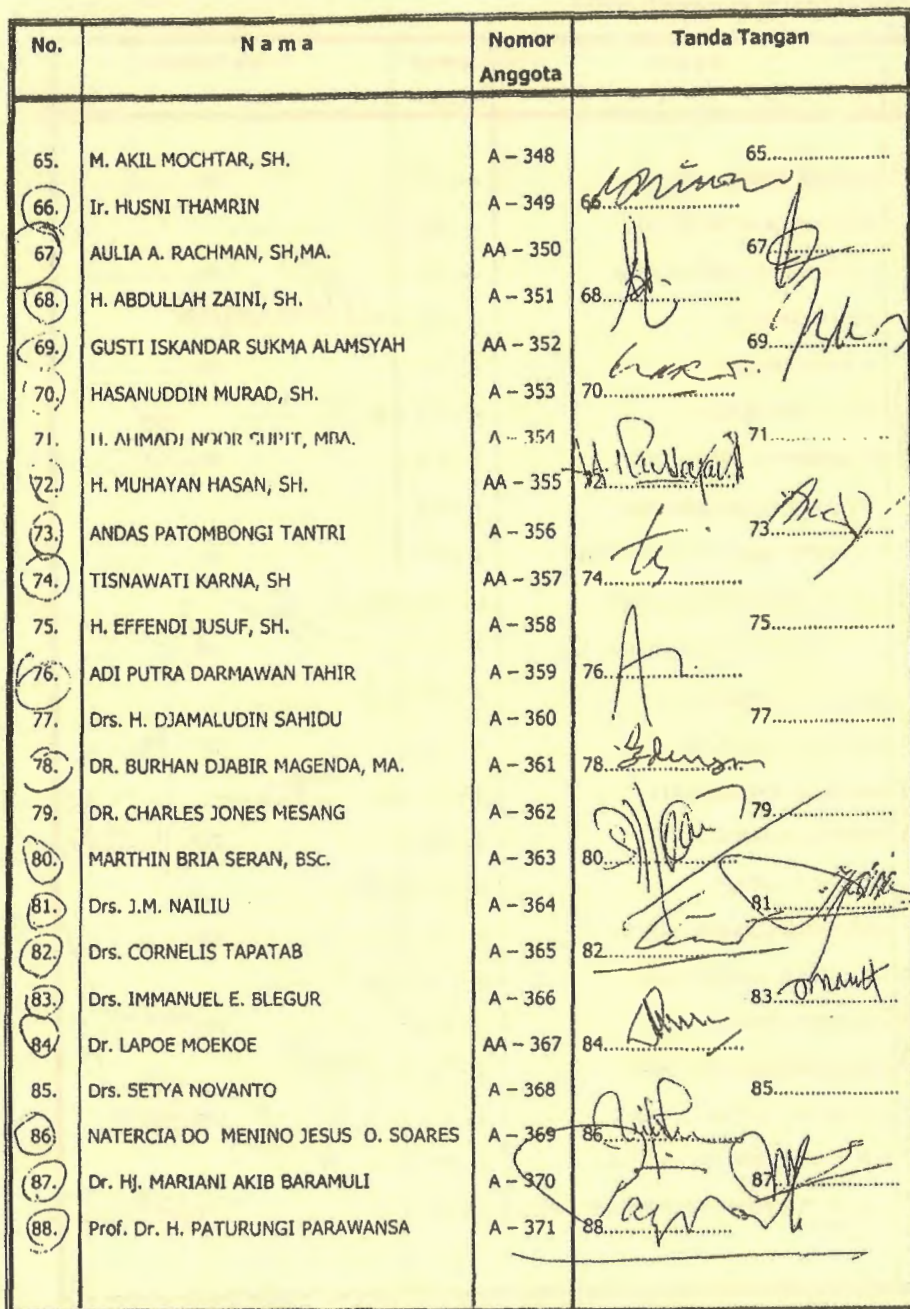 No. Nama Nomor Anggota Tanda Tangan
65. M. AKIL MOCHTAR, SH. A – 348 65......................
66. Ir. HUSNI THAMRIN A – 349 66......................
67. AULIA A. RACHMAN, SH,MA. AA – 350 67......................
68. H. ABDULLAH ZAINI, SH. A – 351 68......................
69. GUSTI ISKANDAR SUKMA ALAMSYAH AA – 352 69......................
70. HASANUDDIN MURAD, SH. A – 353 70......................
71. H. AHMADI NOOR SUPIT, MBA. A – 354 71......................
72. H. MUHAYAN HASAN, SH. AA – 355 72......................
73. ANDAS PATOMBONGI TANTRI A – 356 73......................
74. TISNAWATI KARNA, SH AA – 357 74......................
75. H. EFFENDI JUSUF, SH. A – 358 75......................
76. ADI PUTRA DARMAWAN TAHIR A – 359 76......................
77. Drs. H. DJAMALUDIN SAHIDU A – 360 77......................
78. DR. BURHAN DJABIR MAGENDA, MA. A – 361 78......................
79. DR. CHARLES JONES MESANG A – 362 79......................
80. MARTHIN BRIA SERAN, BSc. A – 363 80......................
81. Drs. J.M. NAILIU A – 364 81......................
82. Drs. CORNELIS TAPATAB A – 365 82......................
83. Drs. IMMANUEL E. BLEGUR A – 366 83......................
84. Dr. LAPOE MOEKOE AA – 367 84......................
85. Drs. SETYA NOVANTO A – 368 85......................
86. NATERCIA DO MENINO JESUS O. SOARES A – 369 86......................
87. Dr. Hj. MARIANI AKIB BARAMULI A – 370 87......................
88. Prof. Dr. H. PATURUNGI PARAWANSA A – 371 88......................